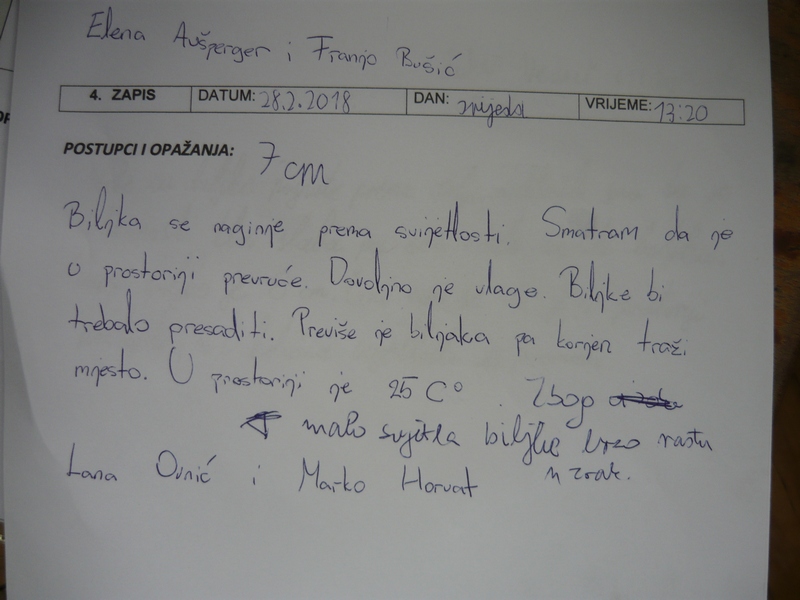 Elena Aušperger i Franjo Bušić
4. ZAPIS DATUM: 28.2.2018 DAN: srijeda VRIJEME: 13:20
POSTUPCI I OPAŽANJA: 7 cm
Biljka se naginje prema svijetlosti. Smatram da je
u prostoriji prevruće. Dovoljno je vlage. Biljke bi
trebalo presaditi. Previše je biljaka pa korijen traži
mjesto. U prostoriji je 25 C° . Zbog
malo svjetla biljke brzo rastu
Lana Ovnić i Marko Horvat u zrak.